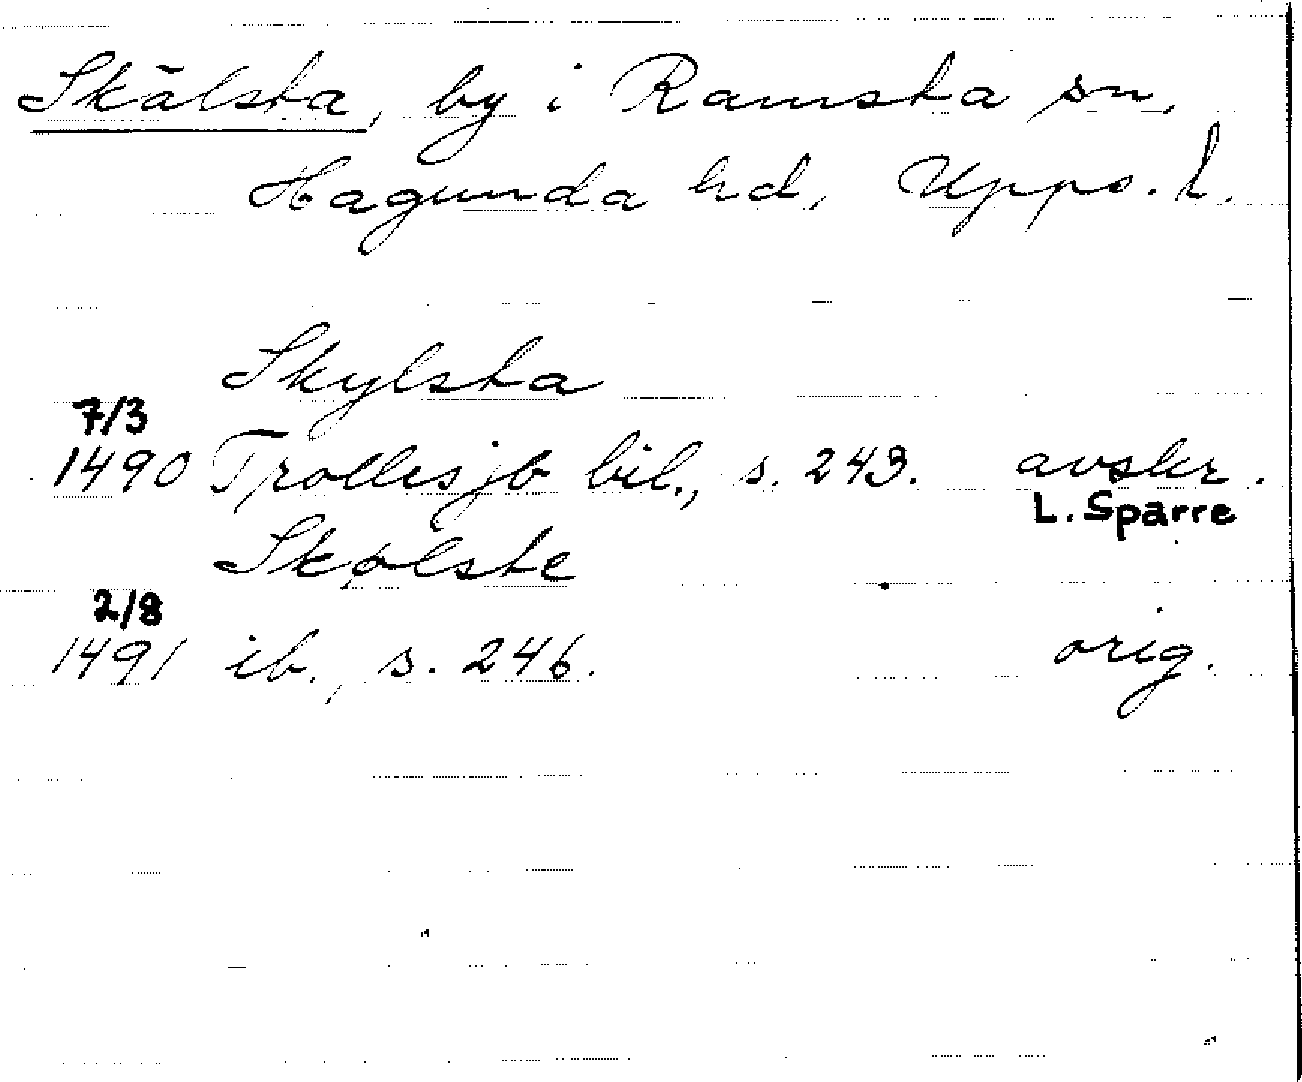 Skälsta, by i Ramsta sn,
Hagunda hd, Upps. l.
Skylsta
7/3
1490 Trollesjb bil., s. 243. avskr.
L. Sparre
Skølste
2/8
1491 ib., s. 246. orig.